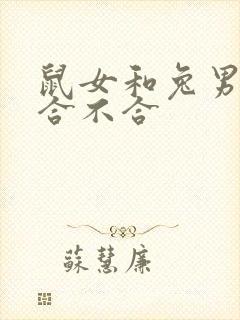 鼠女和兔男
合不合
蘇慧廉